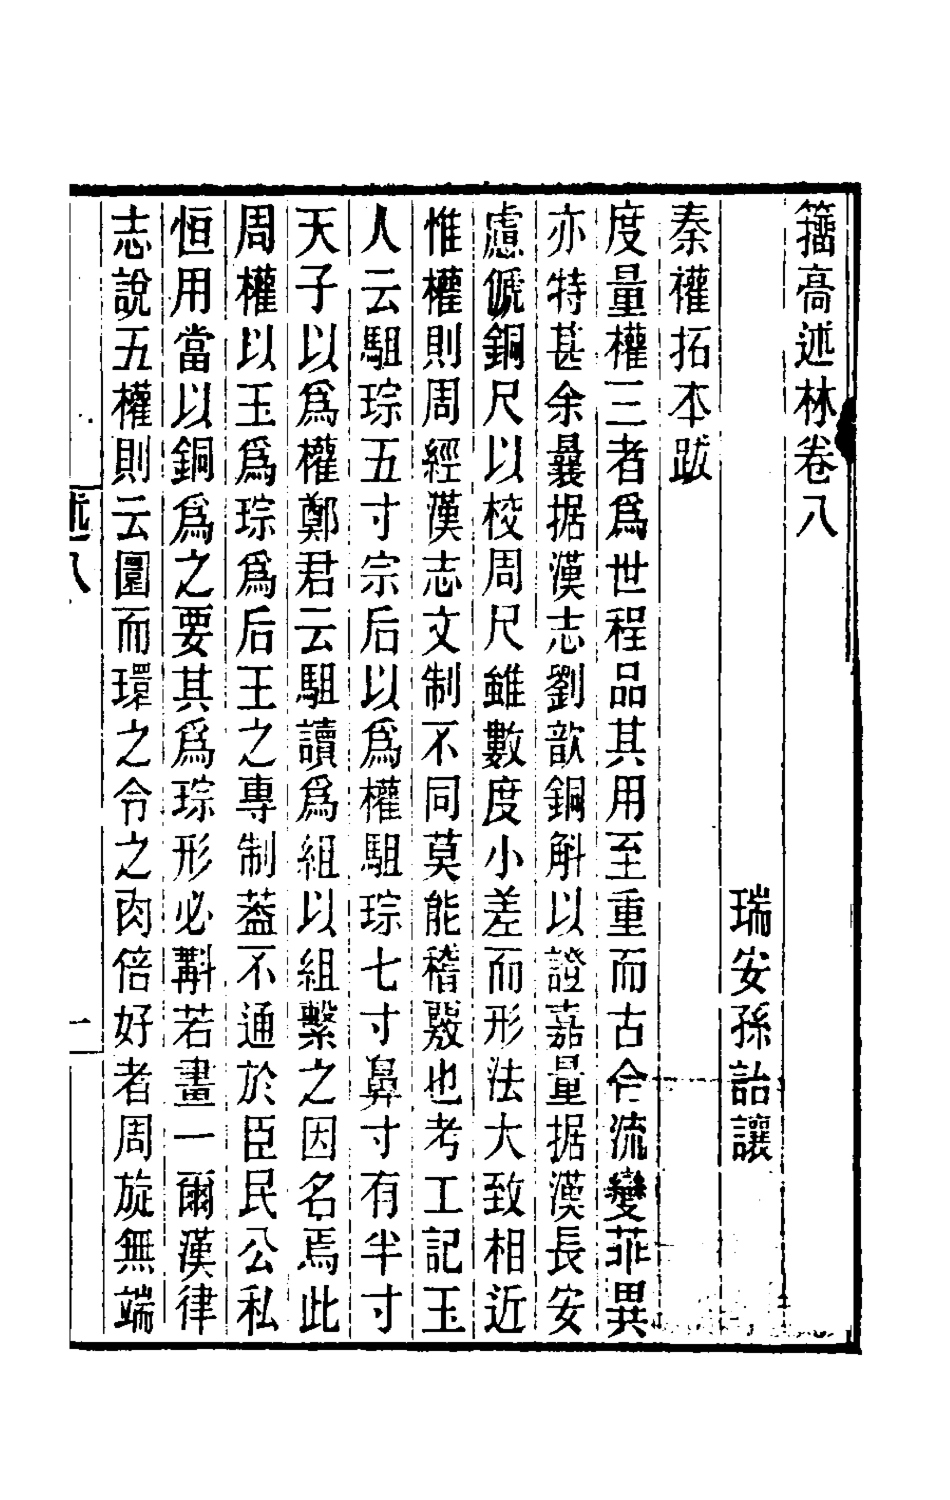 籒高述林卷八
瑞安孫詒讓
秦權拓本跋
度量權三者爲世程品其用至重而古今流變菲異
亦特甚余曩据漢志劉歆銅斛以證嘉量据漢長安
慮俿銅尺以校周尺雖數度小差而形法大致相近
惟權則周經漢志文制不同莫能稽覈也考工記玉
人云駔琮五寸宗后以爲權駔琮七寸鼻寸有半寸
天子以爲權鄭君云駔讀爲組以組繫之因名焉此
周權以玉爲琮爲后王之專制葢不通於臣民公私
恒用當以銅爲之要其爲琮形必斠若畫一爾漢律
志說五權則云圜而環之令之肉倍好者周旋無端
述八
一